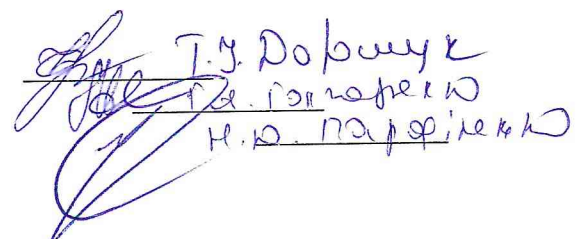 Т.У. Дорошук
Г.А. Гончаренко
Н.О. Парфіненко